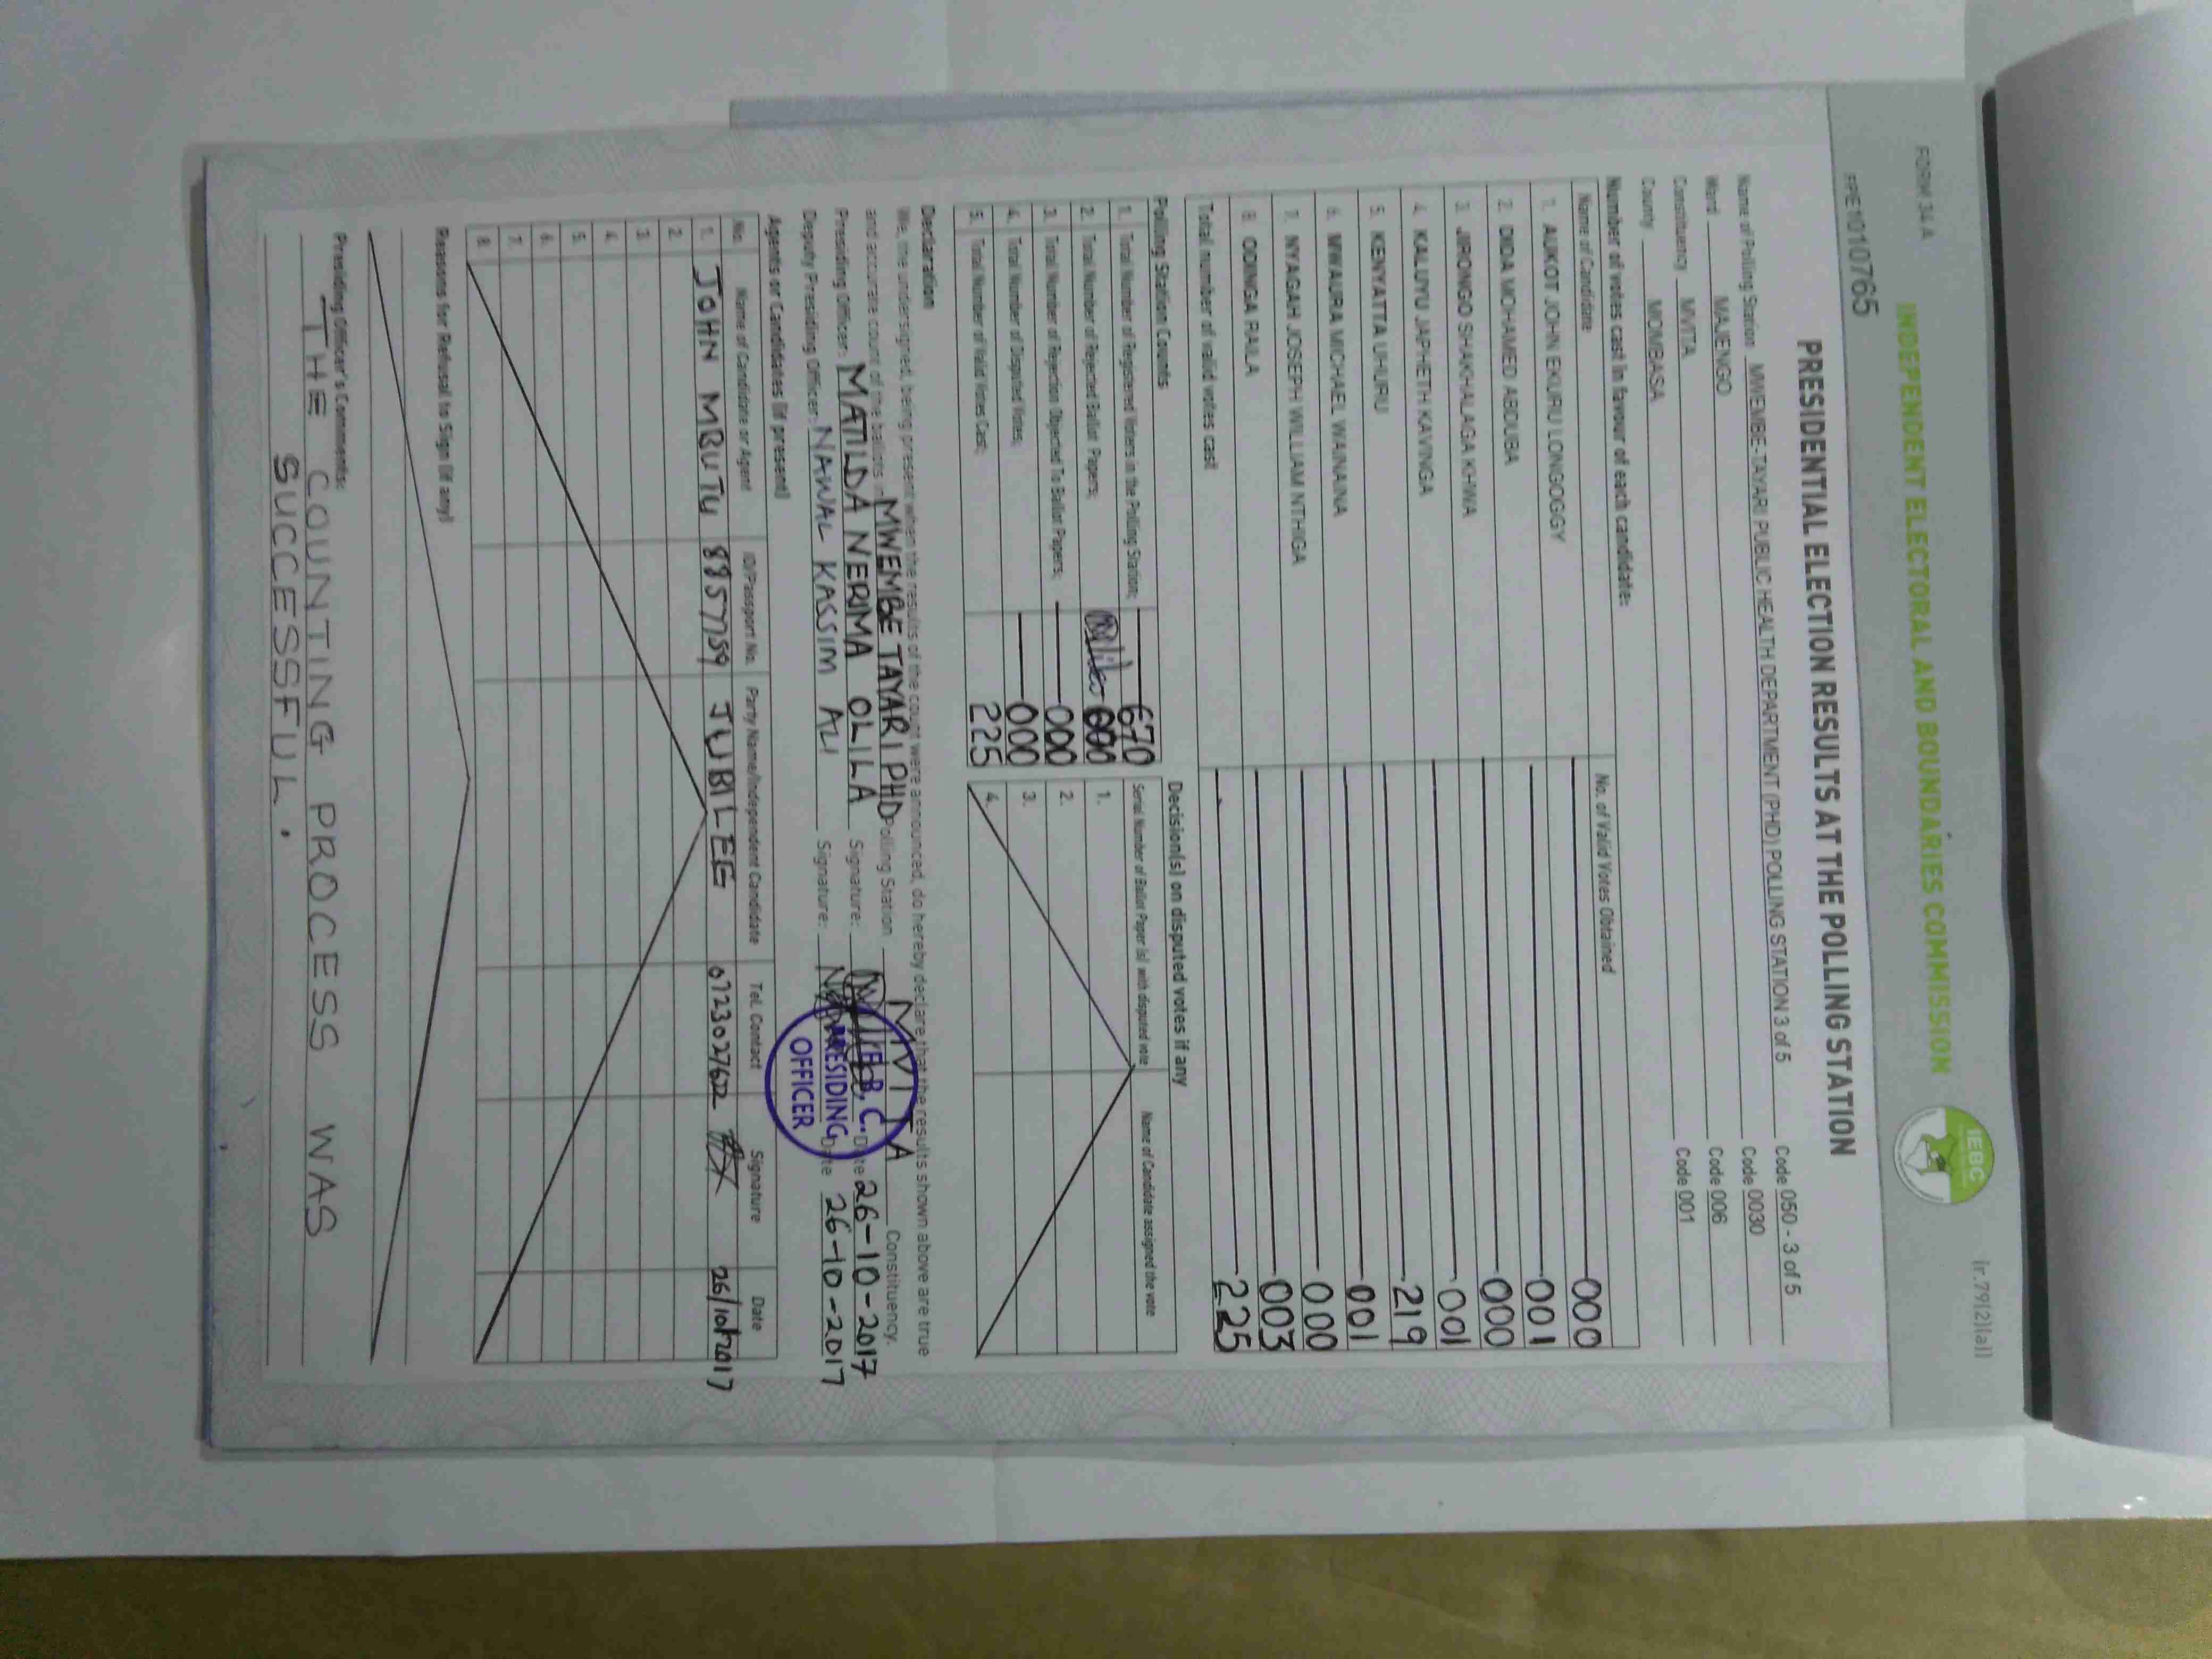 FORM 34A
(r.79(2)(a))
INDEPENDENT ELECTORAL AND BOUNDARIES COMMISSION
IEBC
PRE1010765
PRESIDENTIAL ELECTION RESULTS AT THE POLLING STATION
Name of Polling Station MWEMBE-TAYARI PUBLIC HEALTH DEPARTMENT (PHD) POLLING STATION 3 of 5 Code 050 - 3 of 5
Ward MAJENGO Code 0030
Constituency MVITA Code 006
County MOMBASA Code 001
Number of votes cast in favour of each candidate:
Name of Candidate No. of Valid Votes Obtained
1. AUKOT JOHN EKURU LONGOGGY 000
2. DIDA MOHAMED ABDUBA 001
3. JIRONGO SHAKHALAGA KHWA 000
4. KALUYU JAPHETH KAVINGA 001
5. KENYATTA UHURU 219
6. MWAURA MICHAEL WAINAINA 001
7. NYAGAH JOSEPH WILLIAM NTHIGA 000
8. ODINGA RAILA 003
Total number of valid votes cast 225
Polling Station Counts
1. Total Number of Registered Voters in the Polling Station; 670
2. Total Number of Rejected Ballot Papers; 000
3. Total Number of Rejection Objected To Ballot Papers; 000
4. Total Number of Disputed Votes; 000
5. Total Number of Valid Votes Cast; 225
Decision(s) on disputed votes if any
Serial Number of Ballot Paper (s) with disputed vote Name of Candidate assigned the vote
1.
2.
3.
4.
Declaration
We, the undersigned, being present when the results of the count were announced, do hereby declare that the results shown above are true
and accurate count of the ballots in MWEMBE TAYARI PHD Polling Station MVITA Constituency.
Presiding Officer: MATILDA NERIMA OLILA Signature: Date 26-10-2017
Deputy Presiding Officer: NAWAL KASSIM ALI Signature: Date 26-10-2017
I.E.B.C.
PRESIDING
OFFICER
Agents or Candidates (if present)
No. Name of Candidate or Agent ID/Passport No. Party Name/Independent Candidate Tel. Contact Signature Date
1. JOHN MBUTU 8857759 JUBILEE 0723027622 26/10/2017
2.
3.
4.
5.
6.
7.
8.
Reasons for Refusal to Sign (if any)
Presiding Officer's Comments:
THE COUNTING PROCESS WAS
SUCCESSFUL.